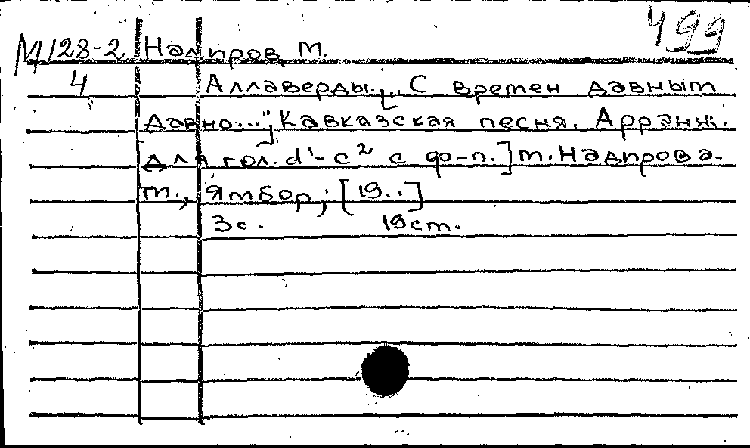 499
М128-2 Надпров, Т.
4 Аллаверды. ["С времен давным
давно..."] Кавказская песня. Арранж.
для гол. d¹-c² с ф-п.] Т. Надпрова.
Т., Ямбор, [19..]
3с. 19ст.